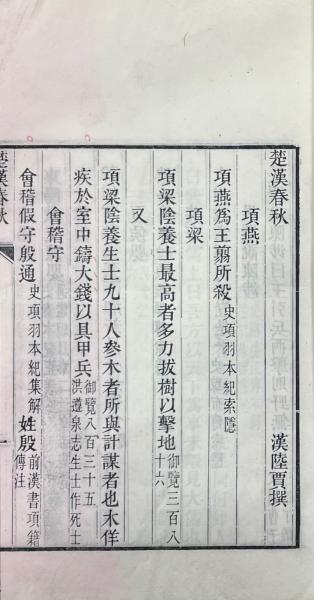 楚漢春秋　漢陸賈撰
項燕
項燕爲王翦所殺史項羽本紀索隱
項梁
項梁陰養士最高者多力拔樹以擊地御覽三百八十六
又
項梁陰養生士九十人參木者所與計謀者也木佯
疾於室中鑄大錢以具甲兵御覽八百三十五洪遵泉志生士作死士
會稽守
會稽假守殷通史項羽本紀集解姓殷前漢書項籍傳注
楚漢春秋